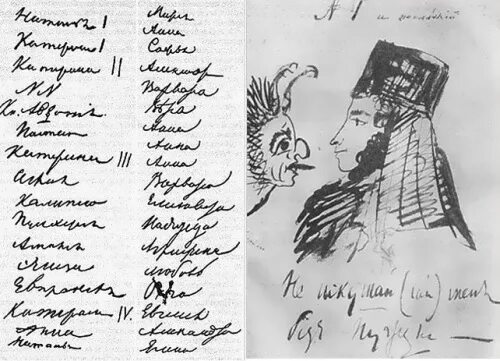 Наталья I
Катерина I
Катерина II
NN
Кн. Авдотия
Настасья
Катерина III
Аглая
Калипсо
Пулхерия
Амалия
Элиза
Евпраксея
Катерина IV.
Анна
Наталья
Мария
Анна
Софья
Александра
Варвара
Вера
Анна
Анна
Анна
Варвара
Елисавета
Надежда
Аграфена
Любовь
Ольга
Евгения
Александра
Елена
I и
Не искушай (сай) меня
без нужды